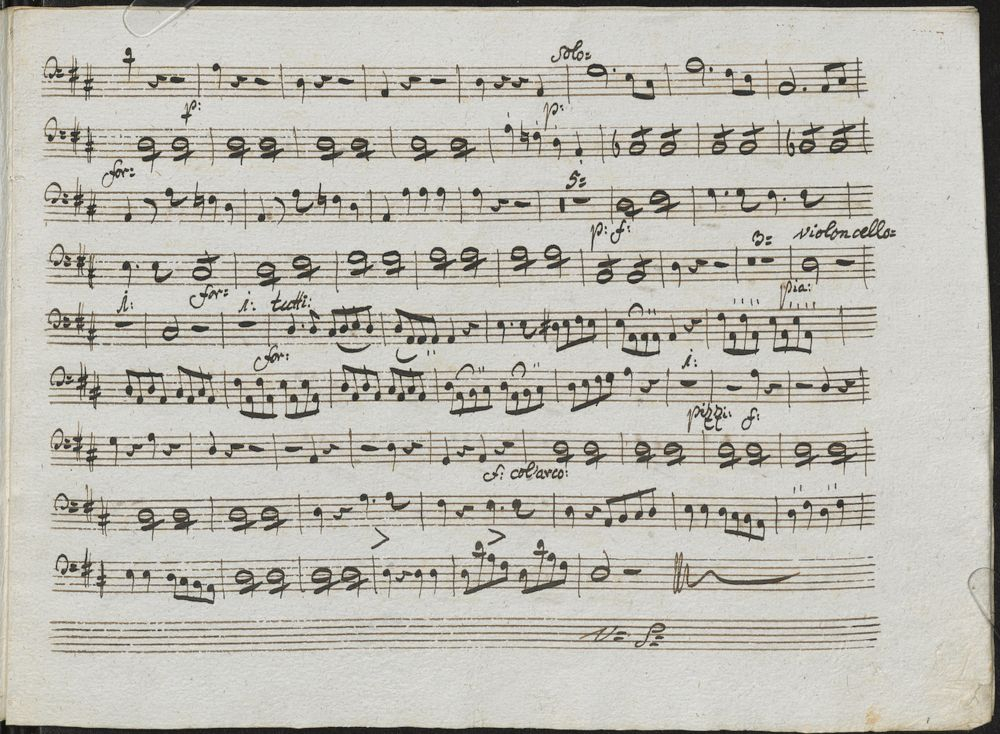 solo=
p: p:
for=
5=
p: f: 3= violoncello=
1: for= 1: tutti: pia:
for: 1:
pizzi: f:
f: col'arco:
V= S=